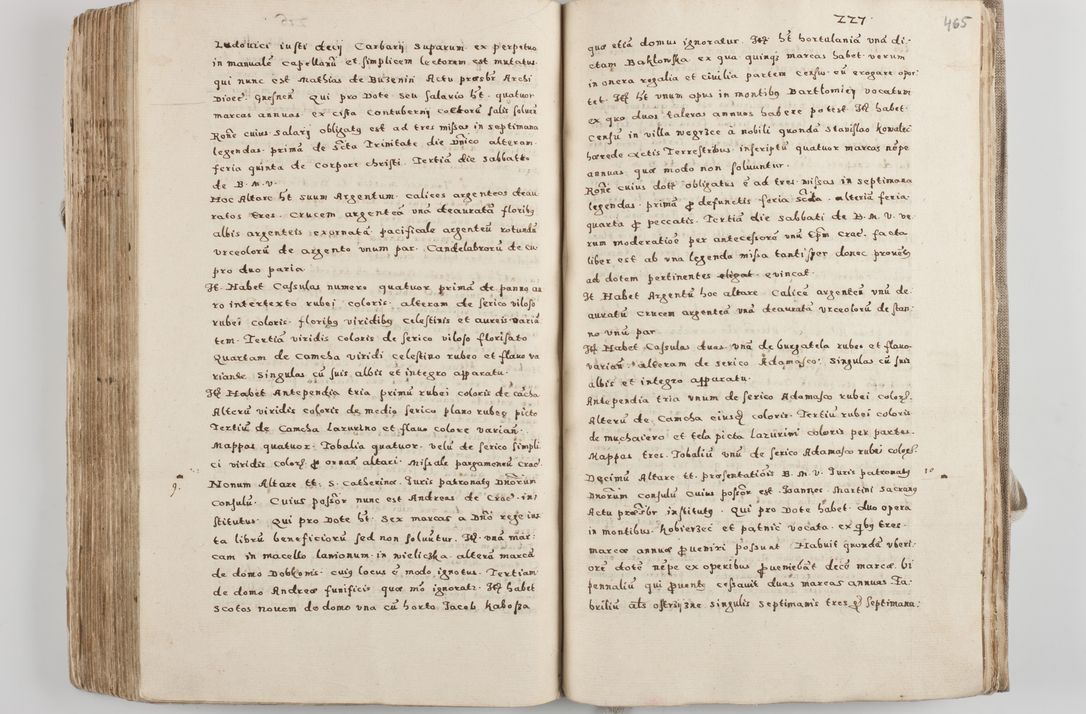 Ludouici iusti decij Carbarij Suparum ex perpetuo
in manualē capellanū et simplicem lectorem est mutatus
qui nunc est Mathias de Buzenin Actu praesbr Archi
Dioec. Gnesnen̄ Qui pro Dote seu salario ht quatuor
marcas annuas ex cista Contubernij salis
Rone cuius salarij obligatq est ad tres missas in septimana
legendas. primā de Scta Trinitate die Dnico alteram
feria quinta de Corpore christi. Tertiā die sabbatho
de B. M. V.
Hoc Altare ht suum Argentum. calices argenteos deau
ratos tres. Crucem argenteā vnā deauratā floribq
albis argenteis exornatā pacificale argenteū rotundū
vrceolorū de argento vnum par. Candelabrorū de cu
pro duo paria
It. Habet Casulas numero quatuor primā de panno au
ro intertexto rubei coloris. alteram de serico viloso
rubei coloris. floribq viridibq Celestinis et aureis varia
tem. Tertiā viridis coloris de serico viloso florisato
Quartam de Camcha viridi celestino rubeo et flauo va
riante Singulas cū suis albis et integro apparatu.
Itē Habet Antependia tria primū rubei coloris de cācha
Alterū viridis coloris de medio serico plano rubeo picto
Tertiū de Camcha Lazurino et flauo colore varian̄.
Mappas quatuor. Tobalia quatuor. velū de serico simpli
ci viridis colors p ornan altari. Missale pargameneū Crac
9. Nonum Altare tt. S. Catherinae. Juris patronatq Dnorum
Consulū. Cuius possor nunc est Andreas de Crac. ins
stitutus. Qui pro Dote ht. Sex marcas a Dno rege ius
ta librū beneficiorū sed non soluutur. Itē. vnā mar
cam in macello lanionum in wieliczka. alterā marcā
de domo Dobkonis. cuiq locus ē modo ignotus. Tertiam
de domo Andreae funificis quae mo ignoratr. Itē habet
Scotos nouem de domo vna cū horto Jacob. Kabossa
227.
465
quae etiā domus ignoratur. Itē ht hortulania vnā di-
ctam Baklonska ex qua quinq marcas habet. verum
in onera regalia et ciuilia partem censu eū erogare opor
tet. Itē ht vnum opus in montibq Bartlomiey vocatum
ex quo duos taleros annuos habere potest. Itē habet
Censū in villa wegrzce a nobili quondā Stanislao Kowalec
haerede Actis Terrestribus inscriptū quatuor marcas nēpe
annuas quae modo non soluuntur.
Rone cuius dotis obligatus ē ad tres missas in septimana
legendas. primā p defunctis feria Scda. alteriā feria
quarta p peccatis. Tertiā die sabbati de B. M. V. ve
rum moderatioē per antecessorē vnū Epm Crac. facta
liber est ab vna legenda missa tantisper donec prouētq
ad dotem pertinentes euincat.
It Habet Argentū hoc altare Calicē argenteū vnū de-
auratū Crucem argenteā vnā deauratā vrceolorū de stan-
no vnū par
Itē Habet Casulas duas vnā de burgatela rubeo et flauo
varian̄. alteram de serico Adamasco. Singulas cū suis
albis et integro apparatu.
Antependia tria vnum de serico Adamasco rubei colors.
Alterū de Camcha eiusq coloris. Tertiū rubei coloris
de muchaiero et tela picta Lazurini coloris per partes.
Mappas tres. Tobaliū vnū de serico Adamasco rubei colors.
Decimū Altare tt. praesentatiois B. M. V. Juris patronatq 10
Dnorum Consulū Cuius possor est Joannes Martini Sacranq
Actu praesbr institutq. Qui pro Dote habet duo opera
in montibus. Kobierzec et patnic vocata. ex qbq tres
marcae annuae pueniri possunt Habuit quondā vberi-
orē dotē nēpe ex operibus pueniebāt decē marcae. Vi
pennaliū qui puentq cessauit duas marcas annuas. Ta-
briliū als ostrzyzne singulis septimanis tres gr septimana: